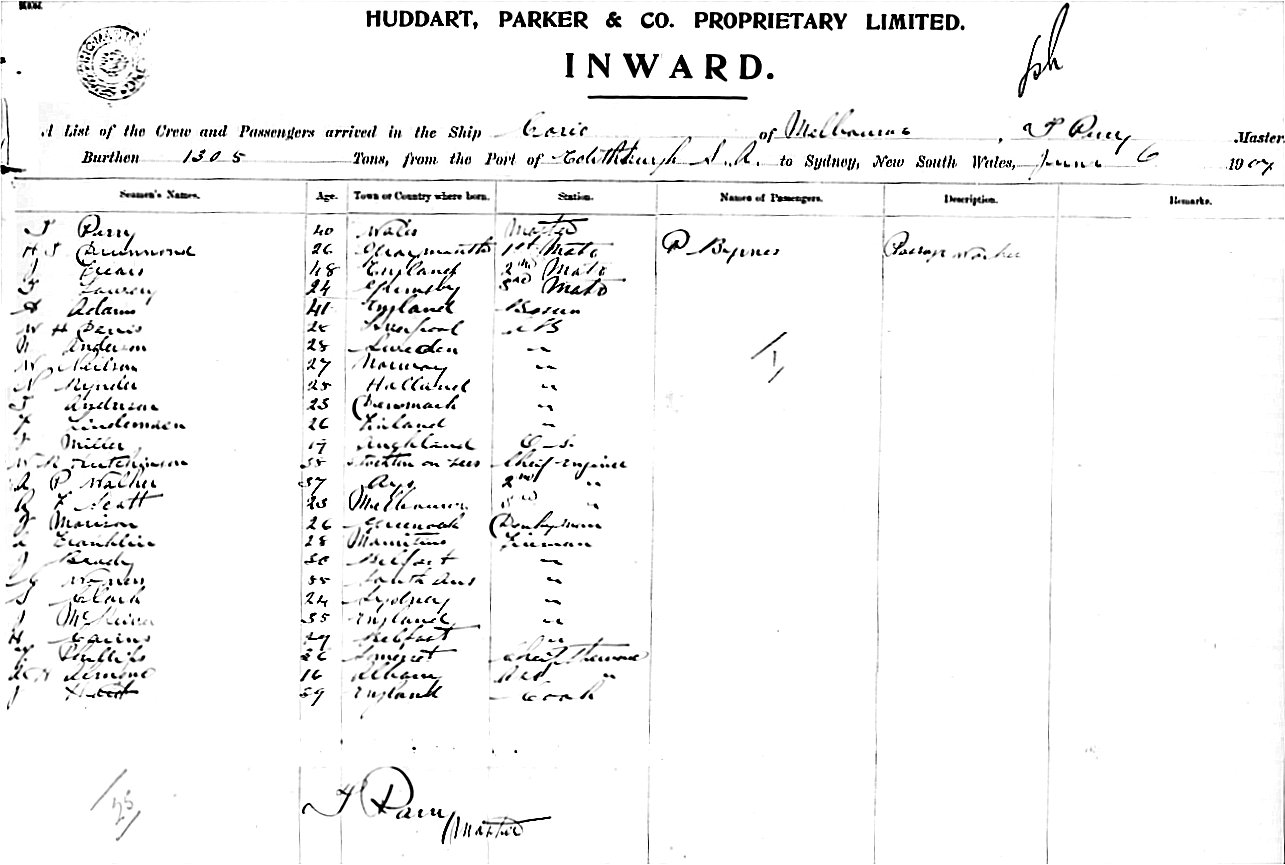 HUDDART, PARKER & CO. PROPRIETARY LIMITED.
INWARD.
A List of the Crew and Passengers arrived in the Ship Coric of Melbourne, T Parry Master
Burthen 1305 Tons, from the Port of Edithburgh S.A. to Sydney, New South Wales, June 6 1907
Seamen's Names. Age. Town or Country where born. Station. Names of Passengers. Description. Remarks.
T Parry 40 Wales Master
H S Drummond 26 1st Mate P Byrnes
J 48 England 2nd Mate
T 24 Grimsby 3rd Mate
A Adams 41 England Bosun
W H 28 Liverpool AB
Anderson 28 Sweden "
W Neilson 27 Norway "
N Rynder 25 Holland "
T Anderson 25 Denmark "
F 26 Finland "
Miller 19 O S
W R Hutchinson Stockton on Tees Chief Engineer
A P Walker 37 Ayr 2nd "
R F Scott 23 Melbourne 3rd "
J Morison 26 Greenock Donkeyman
Franklin 28 Mauritius Fireman
J Brady 30 Belfast "
South Aus "
S Clark 24 Sydney "
J 35 England "
H Cairns 29 Belfast "
Phillips 26 Somerset Chief Steward
16 Albany 2nd "
J 39 England Cook
25
T Parry
Master